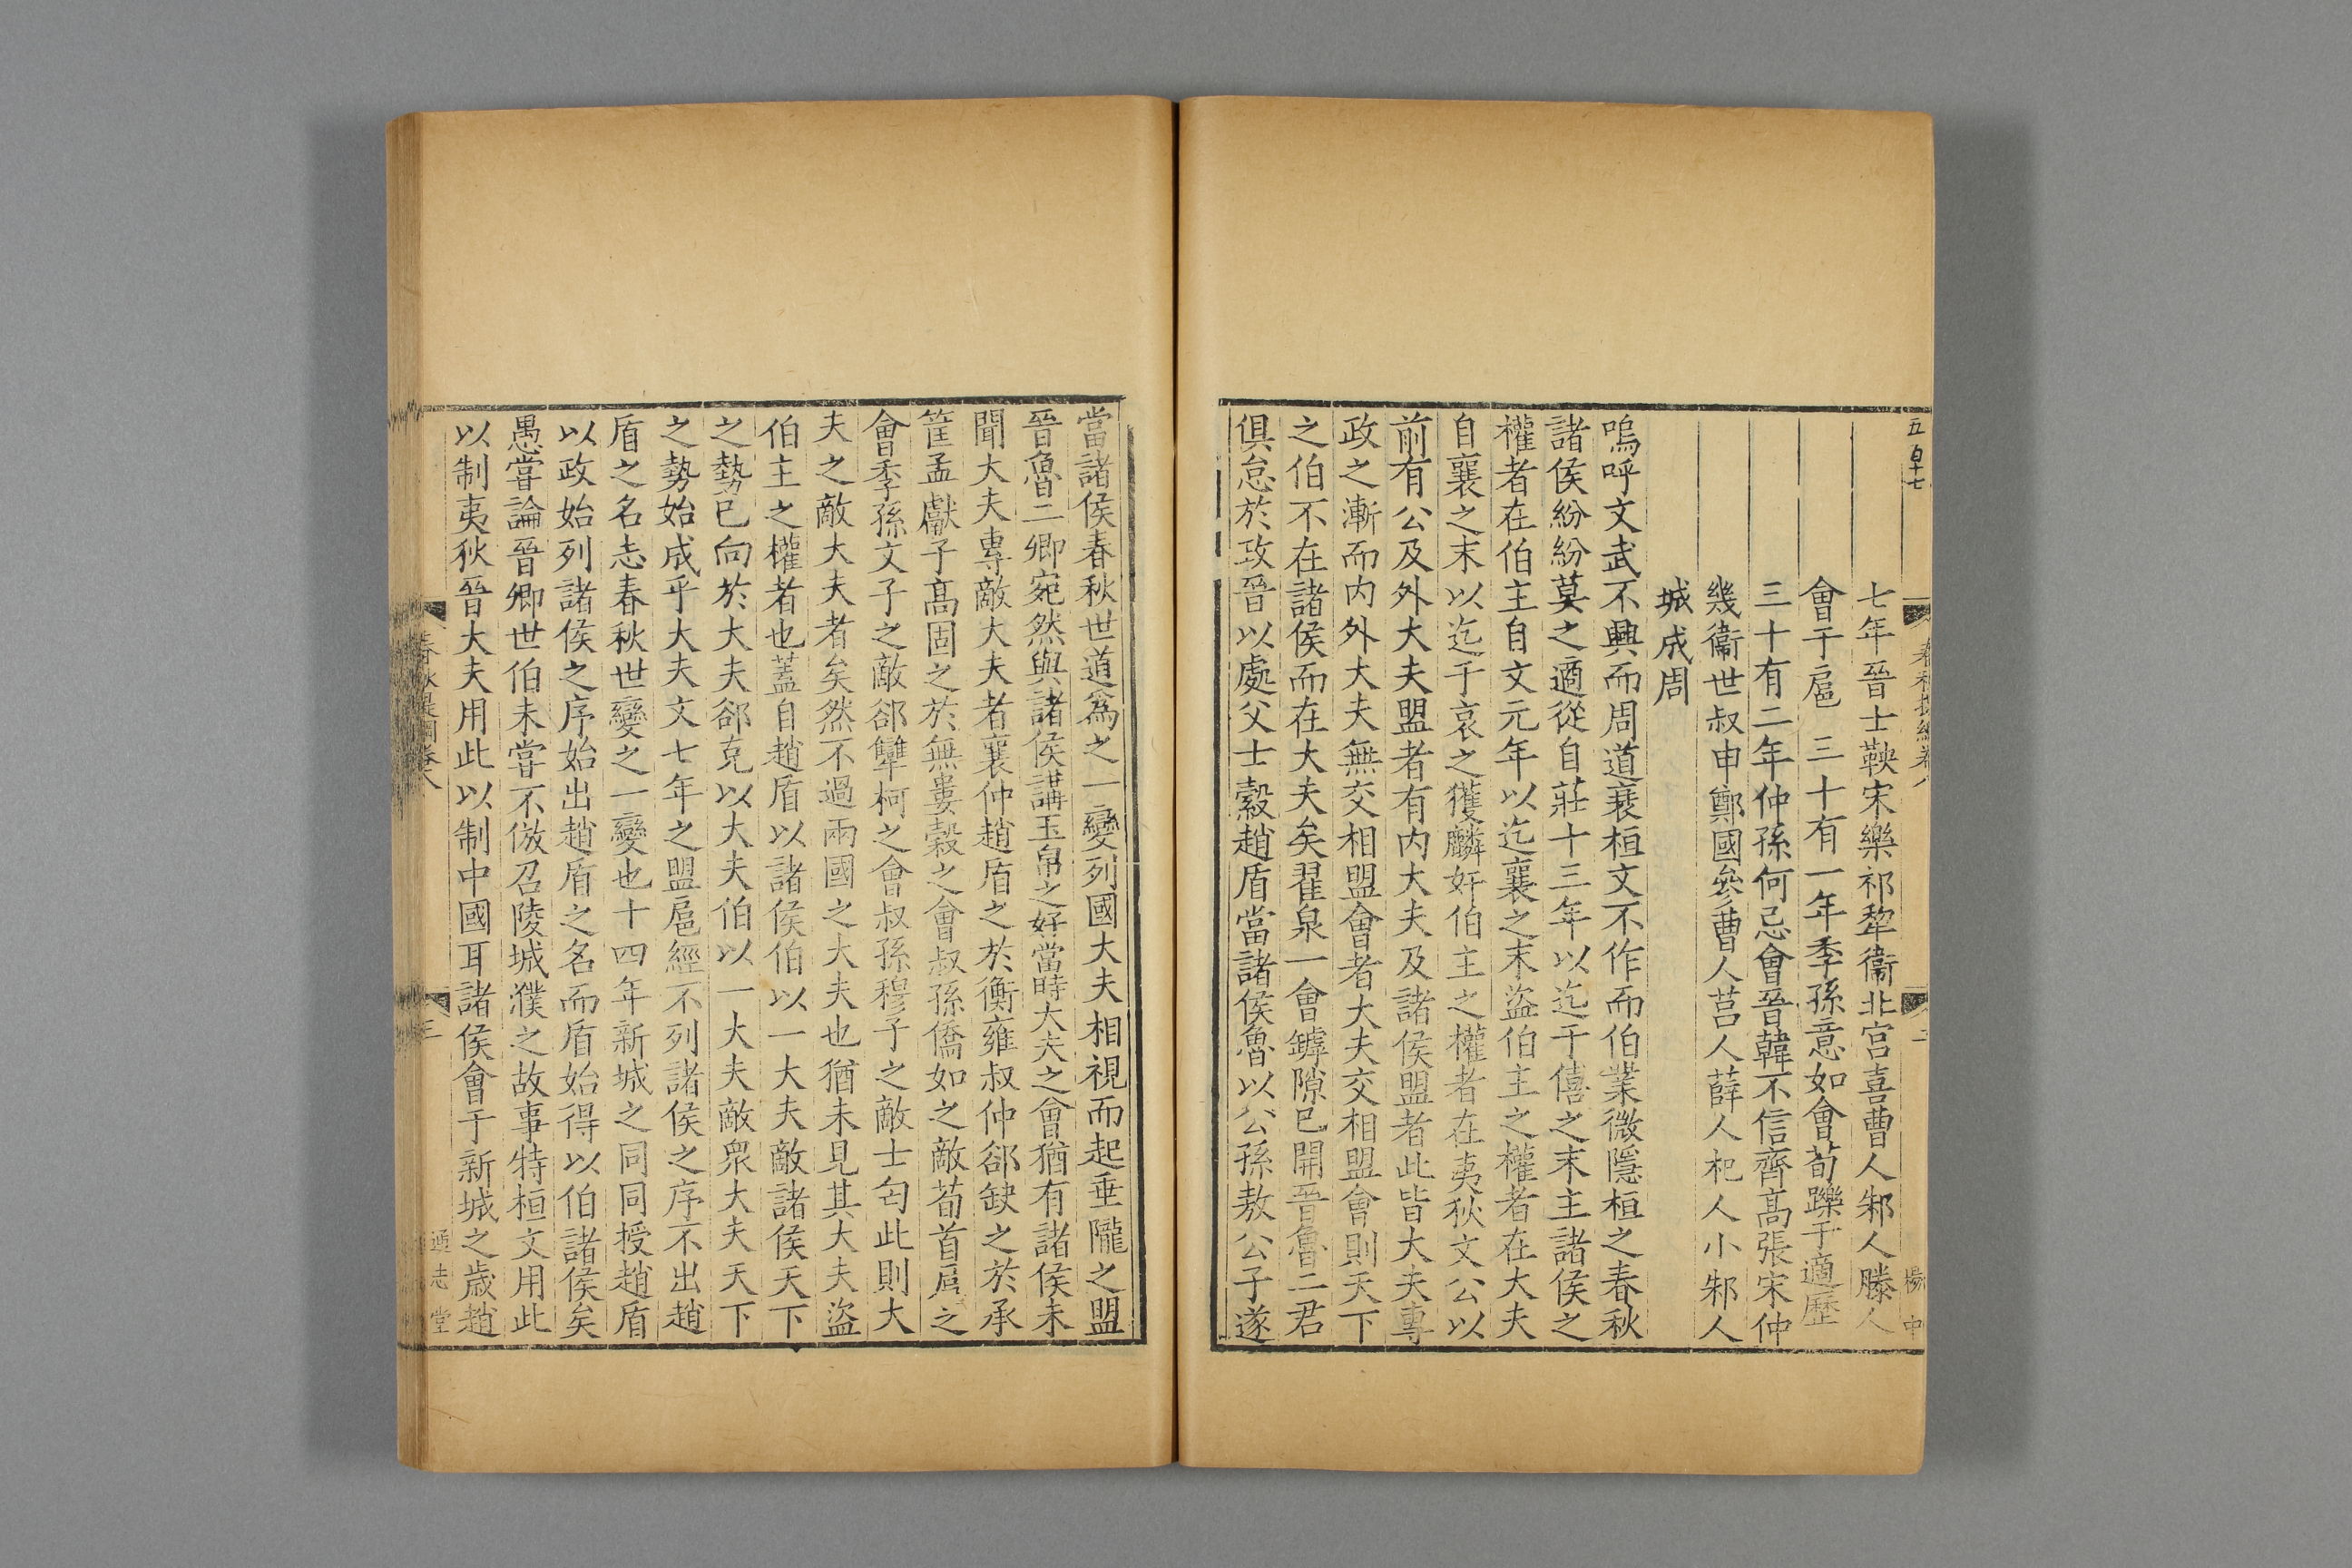 五百十七
春秋提綱卷八
二
楊中
七年晉士鞅宋樂祁犂衞北宮喜曹人邾人滕人
會于扈　三十有一年季孫意如會荀躒于適歷
三十有二年仲孫何忌會晉韓不信齊髙張宋仲
幾衞世叔申鄭國參曹人莒人薛人杞人小邾人
城成周
嗚呼文武不興而周道衰桓文不作而伯業微隱桓之春秋
諸侯紛紛莫之適從自莊十三年以迄于僖之末主諸侯之
權者在伯主自文元年以迄襄之末盜伯主之權者在大夫
自襄之末以迄于哀之獲麟奸伯主之權者在夷狄文公以
前有公及外大夫盟者有内大夫及諸侯盟者此皆大夫專
政之漸而内外大夫無交相盟會者大夫交相盟會則天下
之伯不在諸侯而在大夫矣翟泉一會鏬隙已開晉魯二君
俱怠於政晉以處父士縠趙盾當諸侯魯以公孫敖公子遂
當諸侯春秋世道爲之一變列國大夫相視而起垂隴之盟
晉魯二卿宛然與諸侯講玉帛之好當時大夫之會猶有諸侯未
聞大夫專敵大夫者襄仲趙盾之於衡雍叔仲郤缺之於承
筐孟獻子髙固之於無婁穀之會叔孫僑如之敵荀首扈之
會季孫文子之敵郤犫柯之會叔孫穆子之敵士匄此則大
夫之敵大夫者矣然不過兩國之大夫也猶未見其大夫盜
伯主之權者也蓋自趙盾以諸侯伯以一大夫敵諸侯天下
之勢已向於大夫郤克以大夫伯以一大夫敵衆大夫天下
之勢始成乎大夫文七年之盟扈經不列諸侯之序不出趙
盾之名志春秋世變之一變也十四年新城之同同授趙盾
以政始列諸侯之序始出趙盾之名而盾始得以伯諸侯矣
愚嘗論晉卿世伯未嘗不倣召陵城濮之故事特桓文用此
以制夷狄晉大夫用此以制中國耳諸侯會于新城之歲趙
春秋提綱卷八
三
通志堂